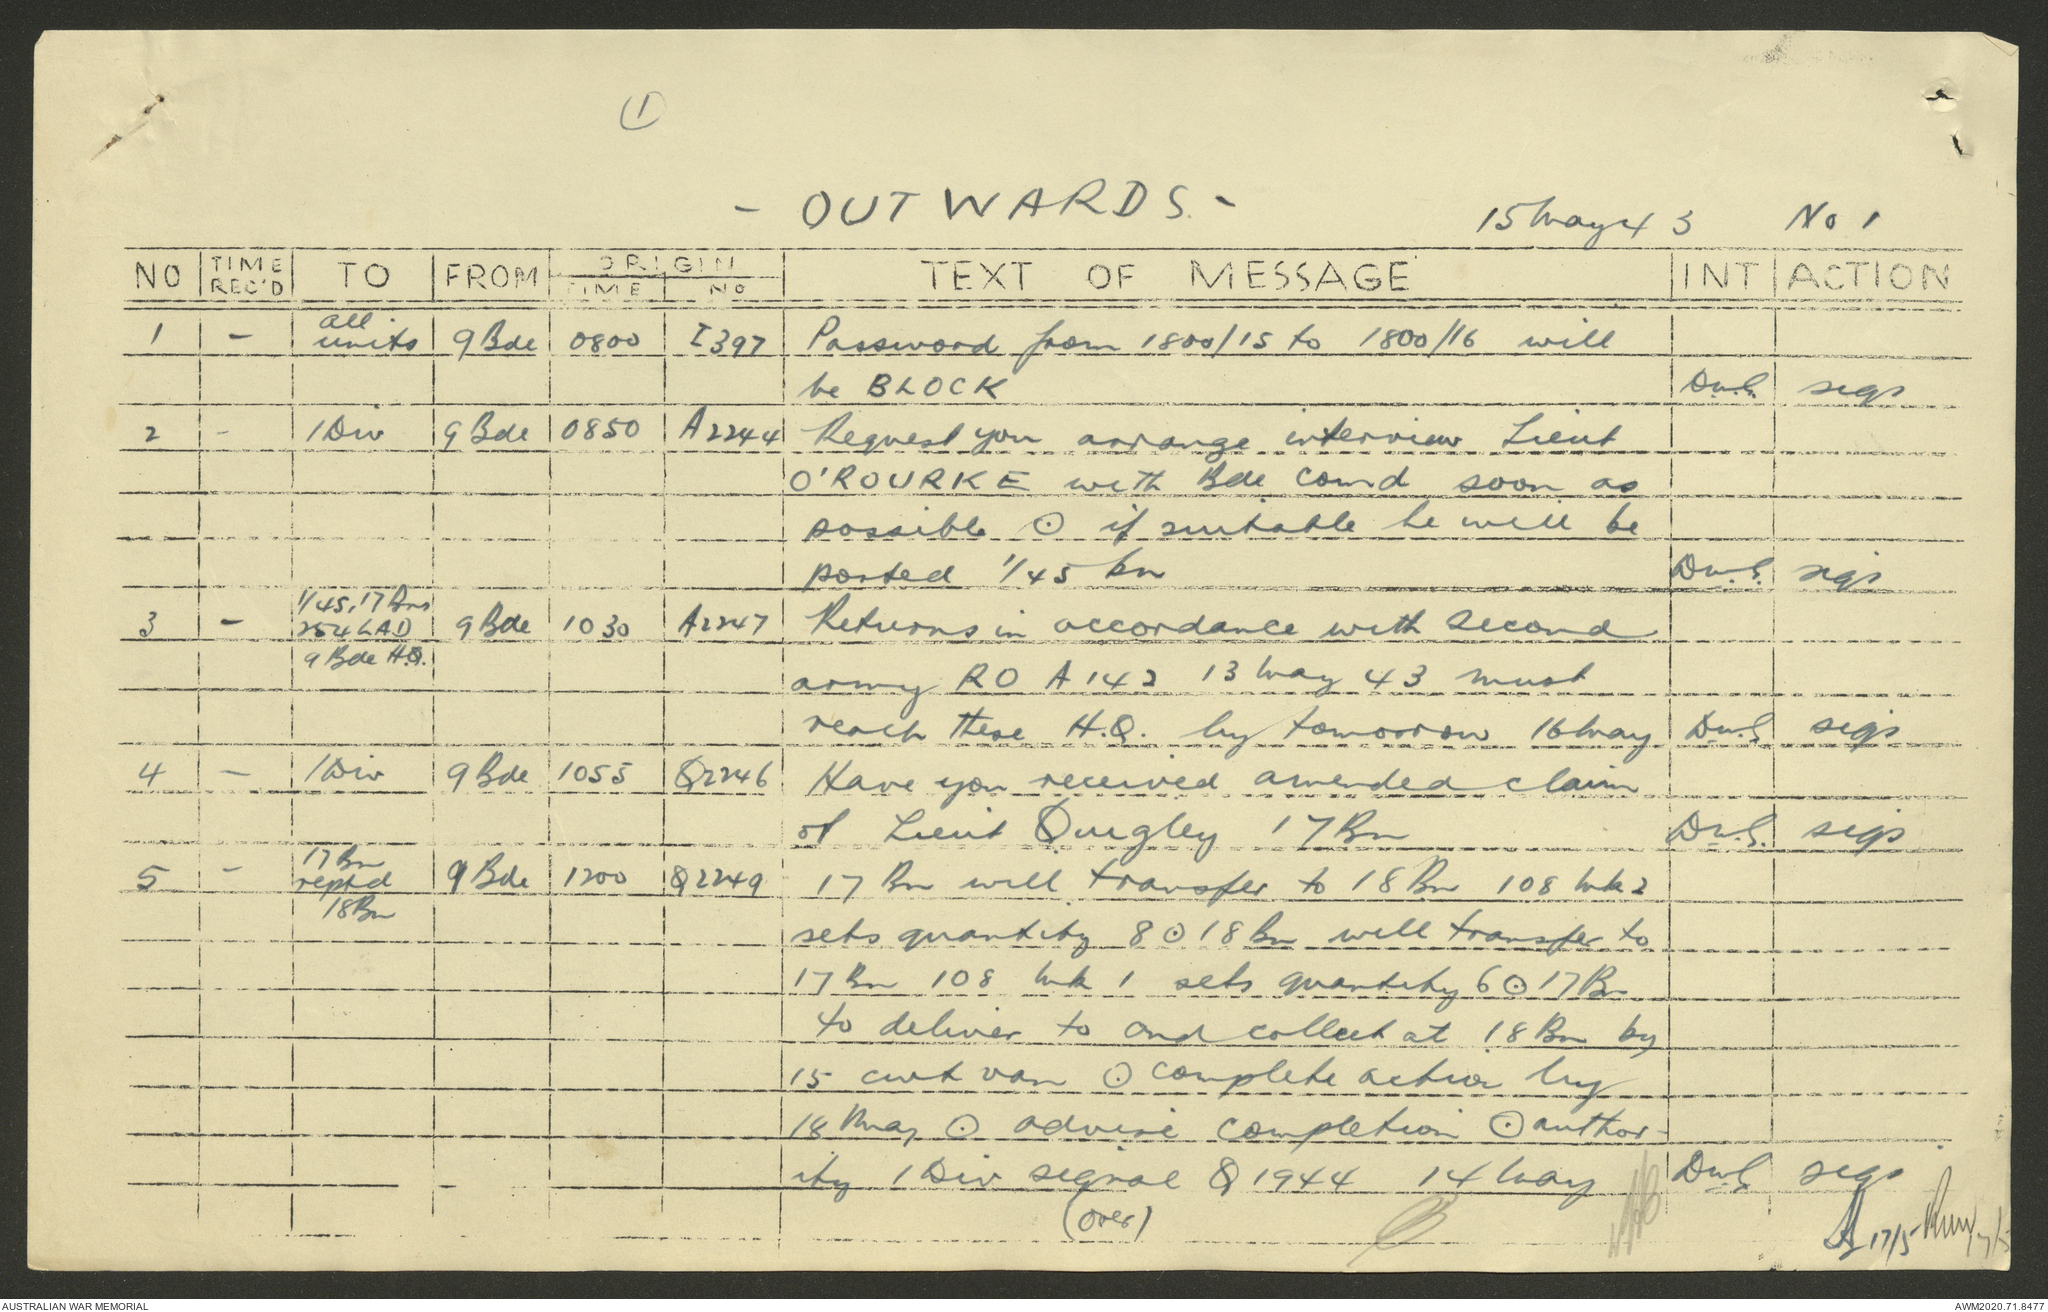 1
- OUTWARDS. -
15 May 43 No 1
NO TIME REC'D TO FROM ORIGIN TIME NO TEXT OF MESSAGE INT ACTION
1 - all units 9 Bde 0800 I397 Password from 1800/15 to 1800/16 will
be BLOCK D.W.G. sigs
2 - 1 Div 9 Bde 0850 A2244 Request you arrange interview Lieut
O'ROURKE with Bde Comd soon as
possible ⊙ if suitable he will be
posted 1/45 bn D.W.G. sigs
3 - 1/45, 17 Bns 254 LAD 9 Bde H.Q. 9 Bde 1030 A2247 Returns in accordance with Second
army RO A 142 13 May 43 must
reach these H.Q. by tomorrow 16 May D.W.G. sigs
4 - 1 Div 9 Bde 1055 Q2246 Have you received amended claim
of Lieut Quigley 17 Bn D.W.G. sigs
5 - 17 Bn reptd 18 Bn 9 Bde 1200 Q2249 17 Bn will transfer to 18 Bn 108 Mk 2
sets quantity 8 ⊙ 18 Bn will transfer to
17 Bn 108 Mk 1 sets quantity 6 ⊙ 17 Bn
to deliver to and collect at 18 Bn by
15 cwt van ⊙ complete action by
18 May ⊙ advise completion ⊙ author-
ity 1 Div signal Q 1944 14 May D.W.G. sigs
(over)
17/5
AUSTRALIAN WAR MEMORIAL
AWM2020.71.8477